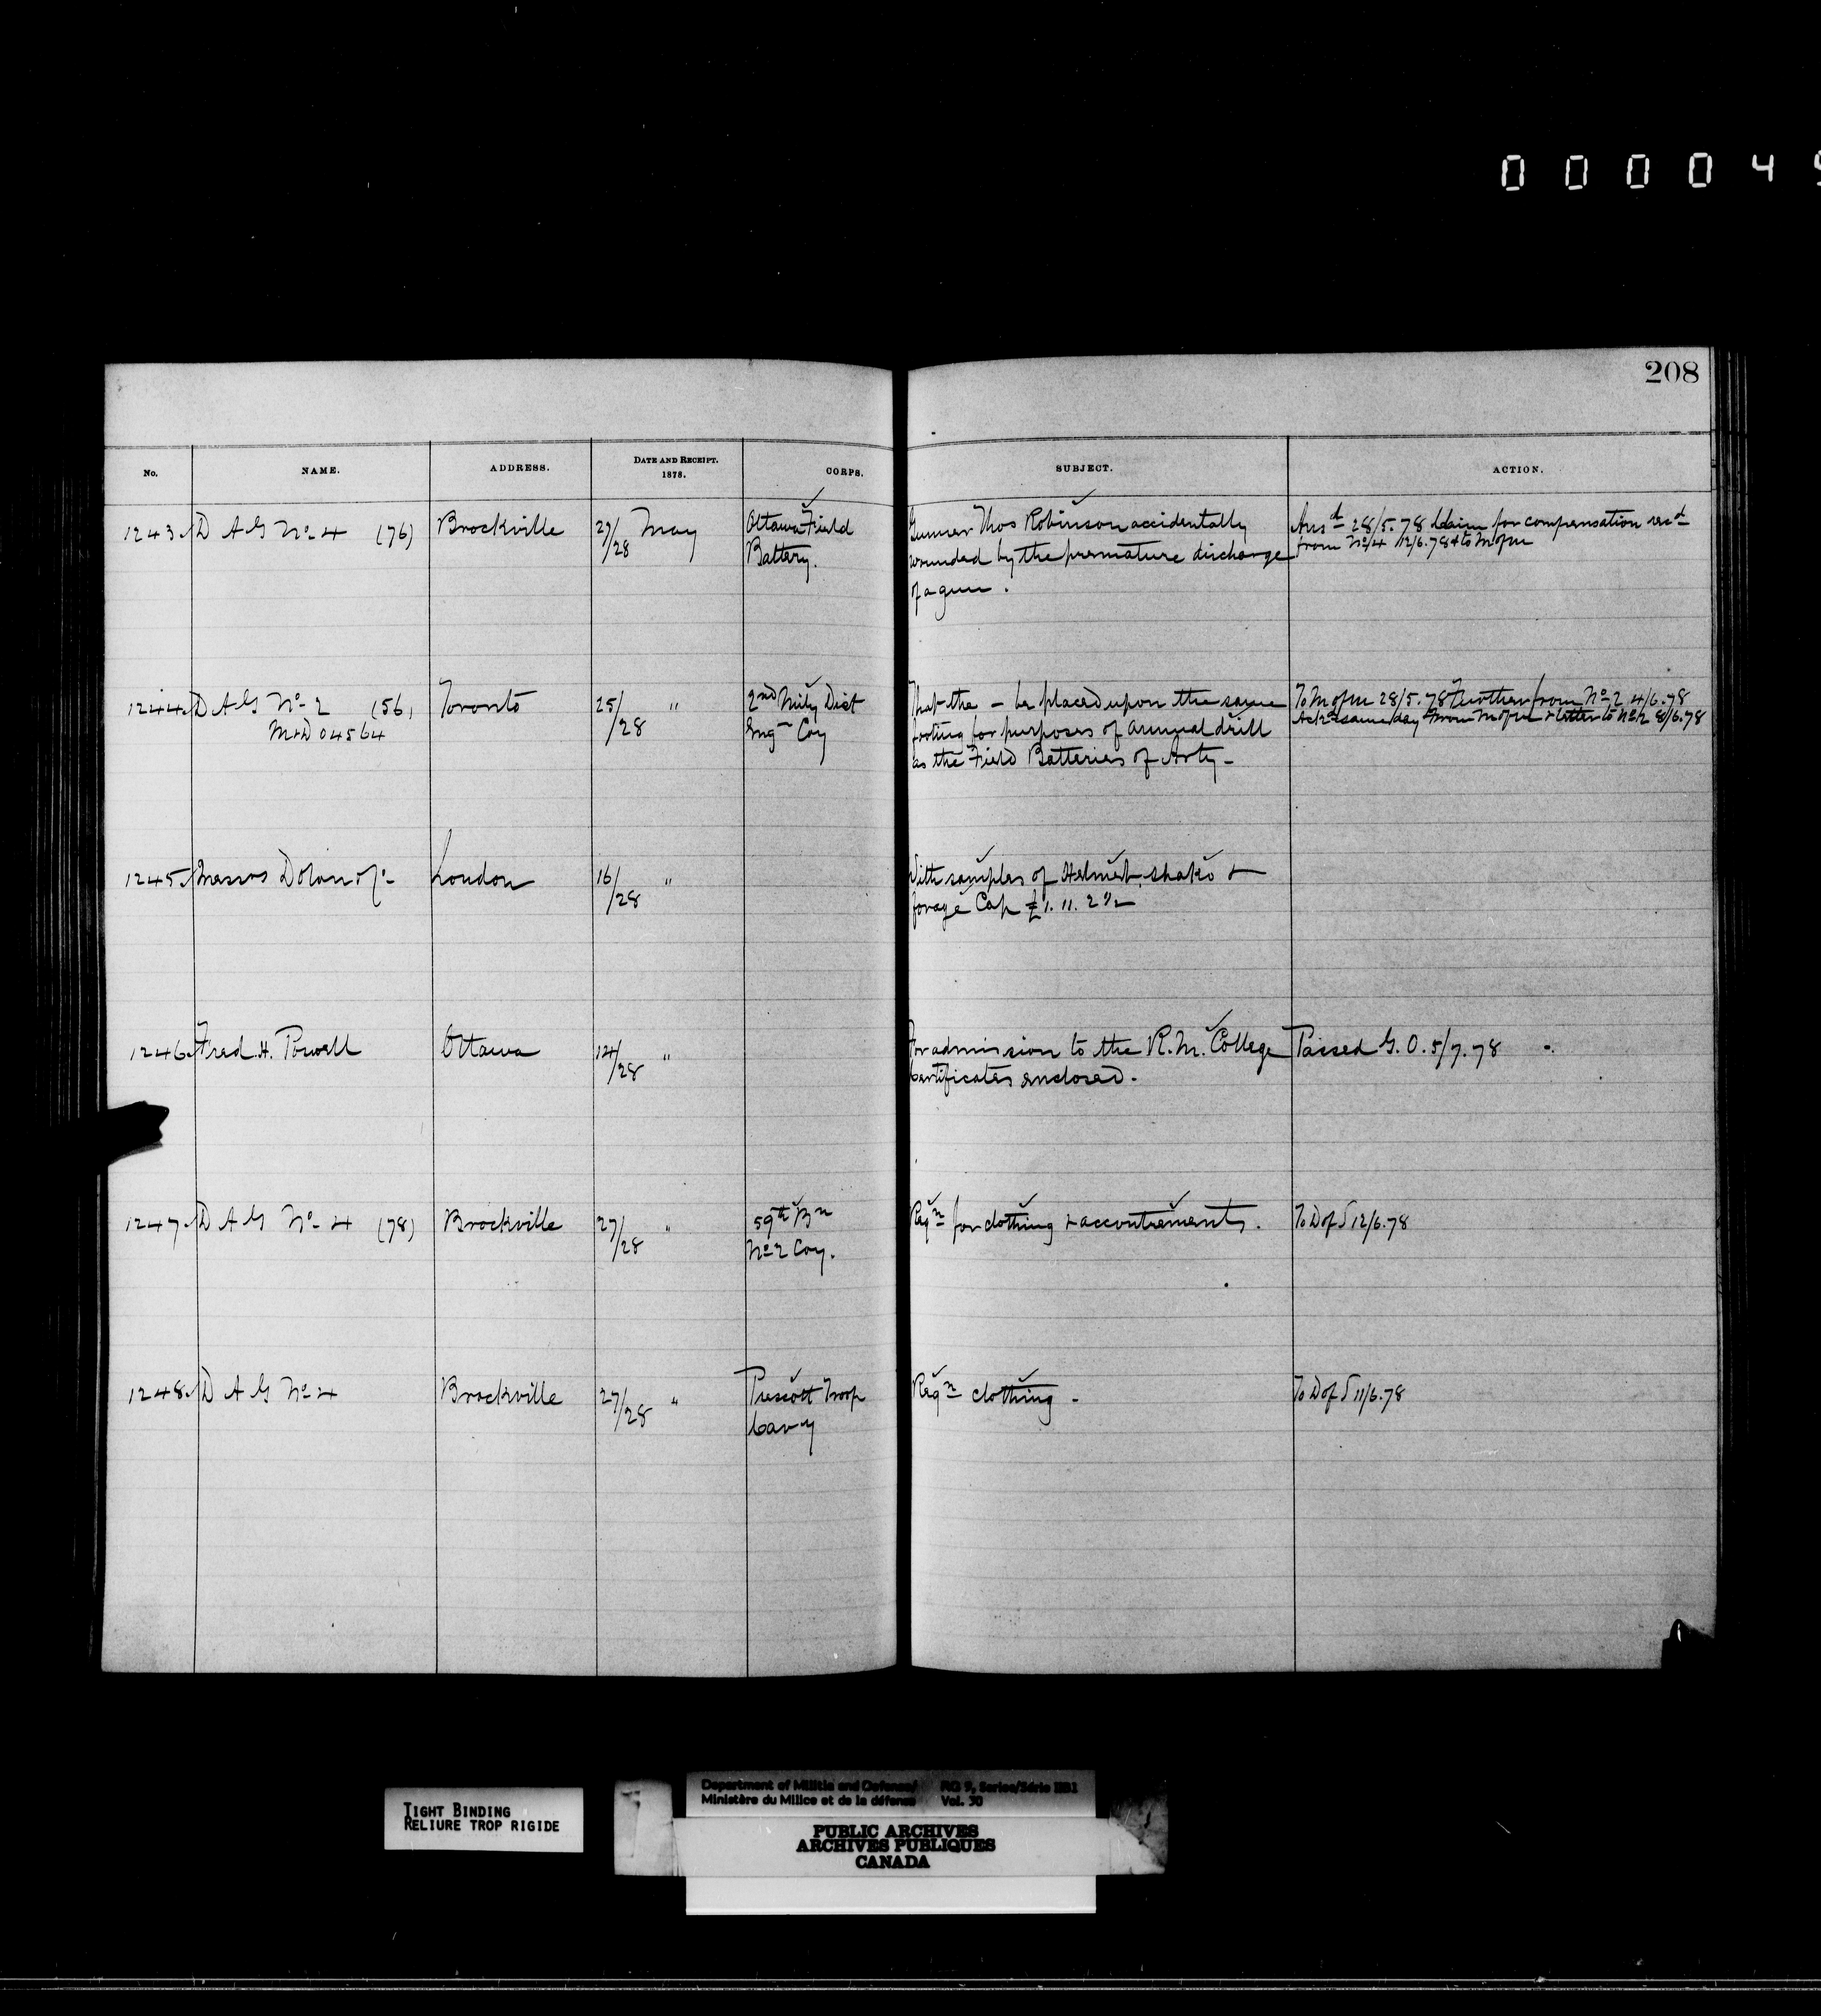 0 0 0 0 4
208
No. NAME. ADDRESS. DATE AND RECEIPT. 1878. CORPS. SUBJECT. ACTION.
1243 D A G No 4 (76) Brockville 27/28 May Ottawa Field Gunner Thos Robinson accidentally Ansd 28/5.78 Claim for compensation recd
Battery. wounded by the premature discharge from No 4 12/6.78 & to M of M
of a gun.
1244 D A G No 2 (56) Toronto 25/28 " 2nd Mily Dist That the – be placed upon the same To M of M 28/5.78 Further from No 2 4/6.78
M&D 04564 Engn Coy footing for purposes of annual drill Ackd same day From M of M & letter to No 2 8/6.78
as the Field Batteries of Arty –
1245 Messrs Dolan & Co London 16/28 " With samples of Helmet, shako &
forage Cap £1. 11. 2 1/2
1246 Fred. H. Powell Ottawa 124/28 " For admission to the R.M. College Passed G.O. 5/7.78
Certificates enclosed.
1247 D A G No 4 (78) Brockville 27/28 " 59th Bn Reqn for clothing & accoutrements. To D of S 12/6.78
No 2 Coy.
1248 D A G No 4 Brockville 27/28 " Prescott Troop Reqn clothing – To D of S 11/6.78
Cavy
TIGHT BINDING
RELIURE TROP RIGIDE
Department of Militia and Defence/ RG 9, Series/Série IIB1
Ministère du Milice et de la défense Vol. 30
PUBLIC ARCHIVES
ARCHIVES PUBLIQUES
CANADA